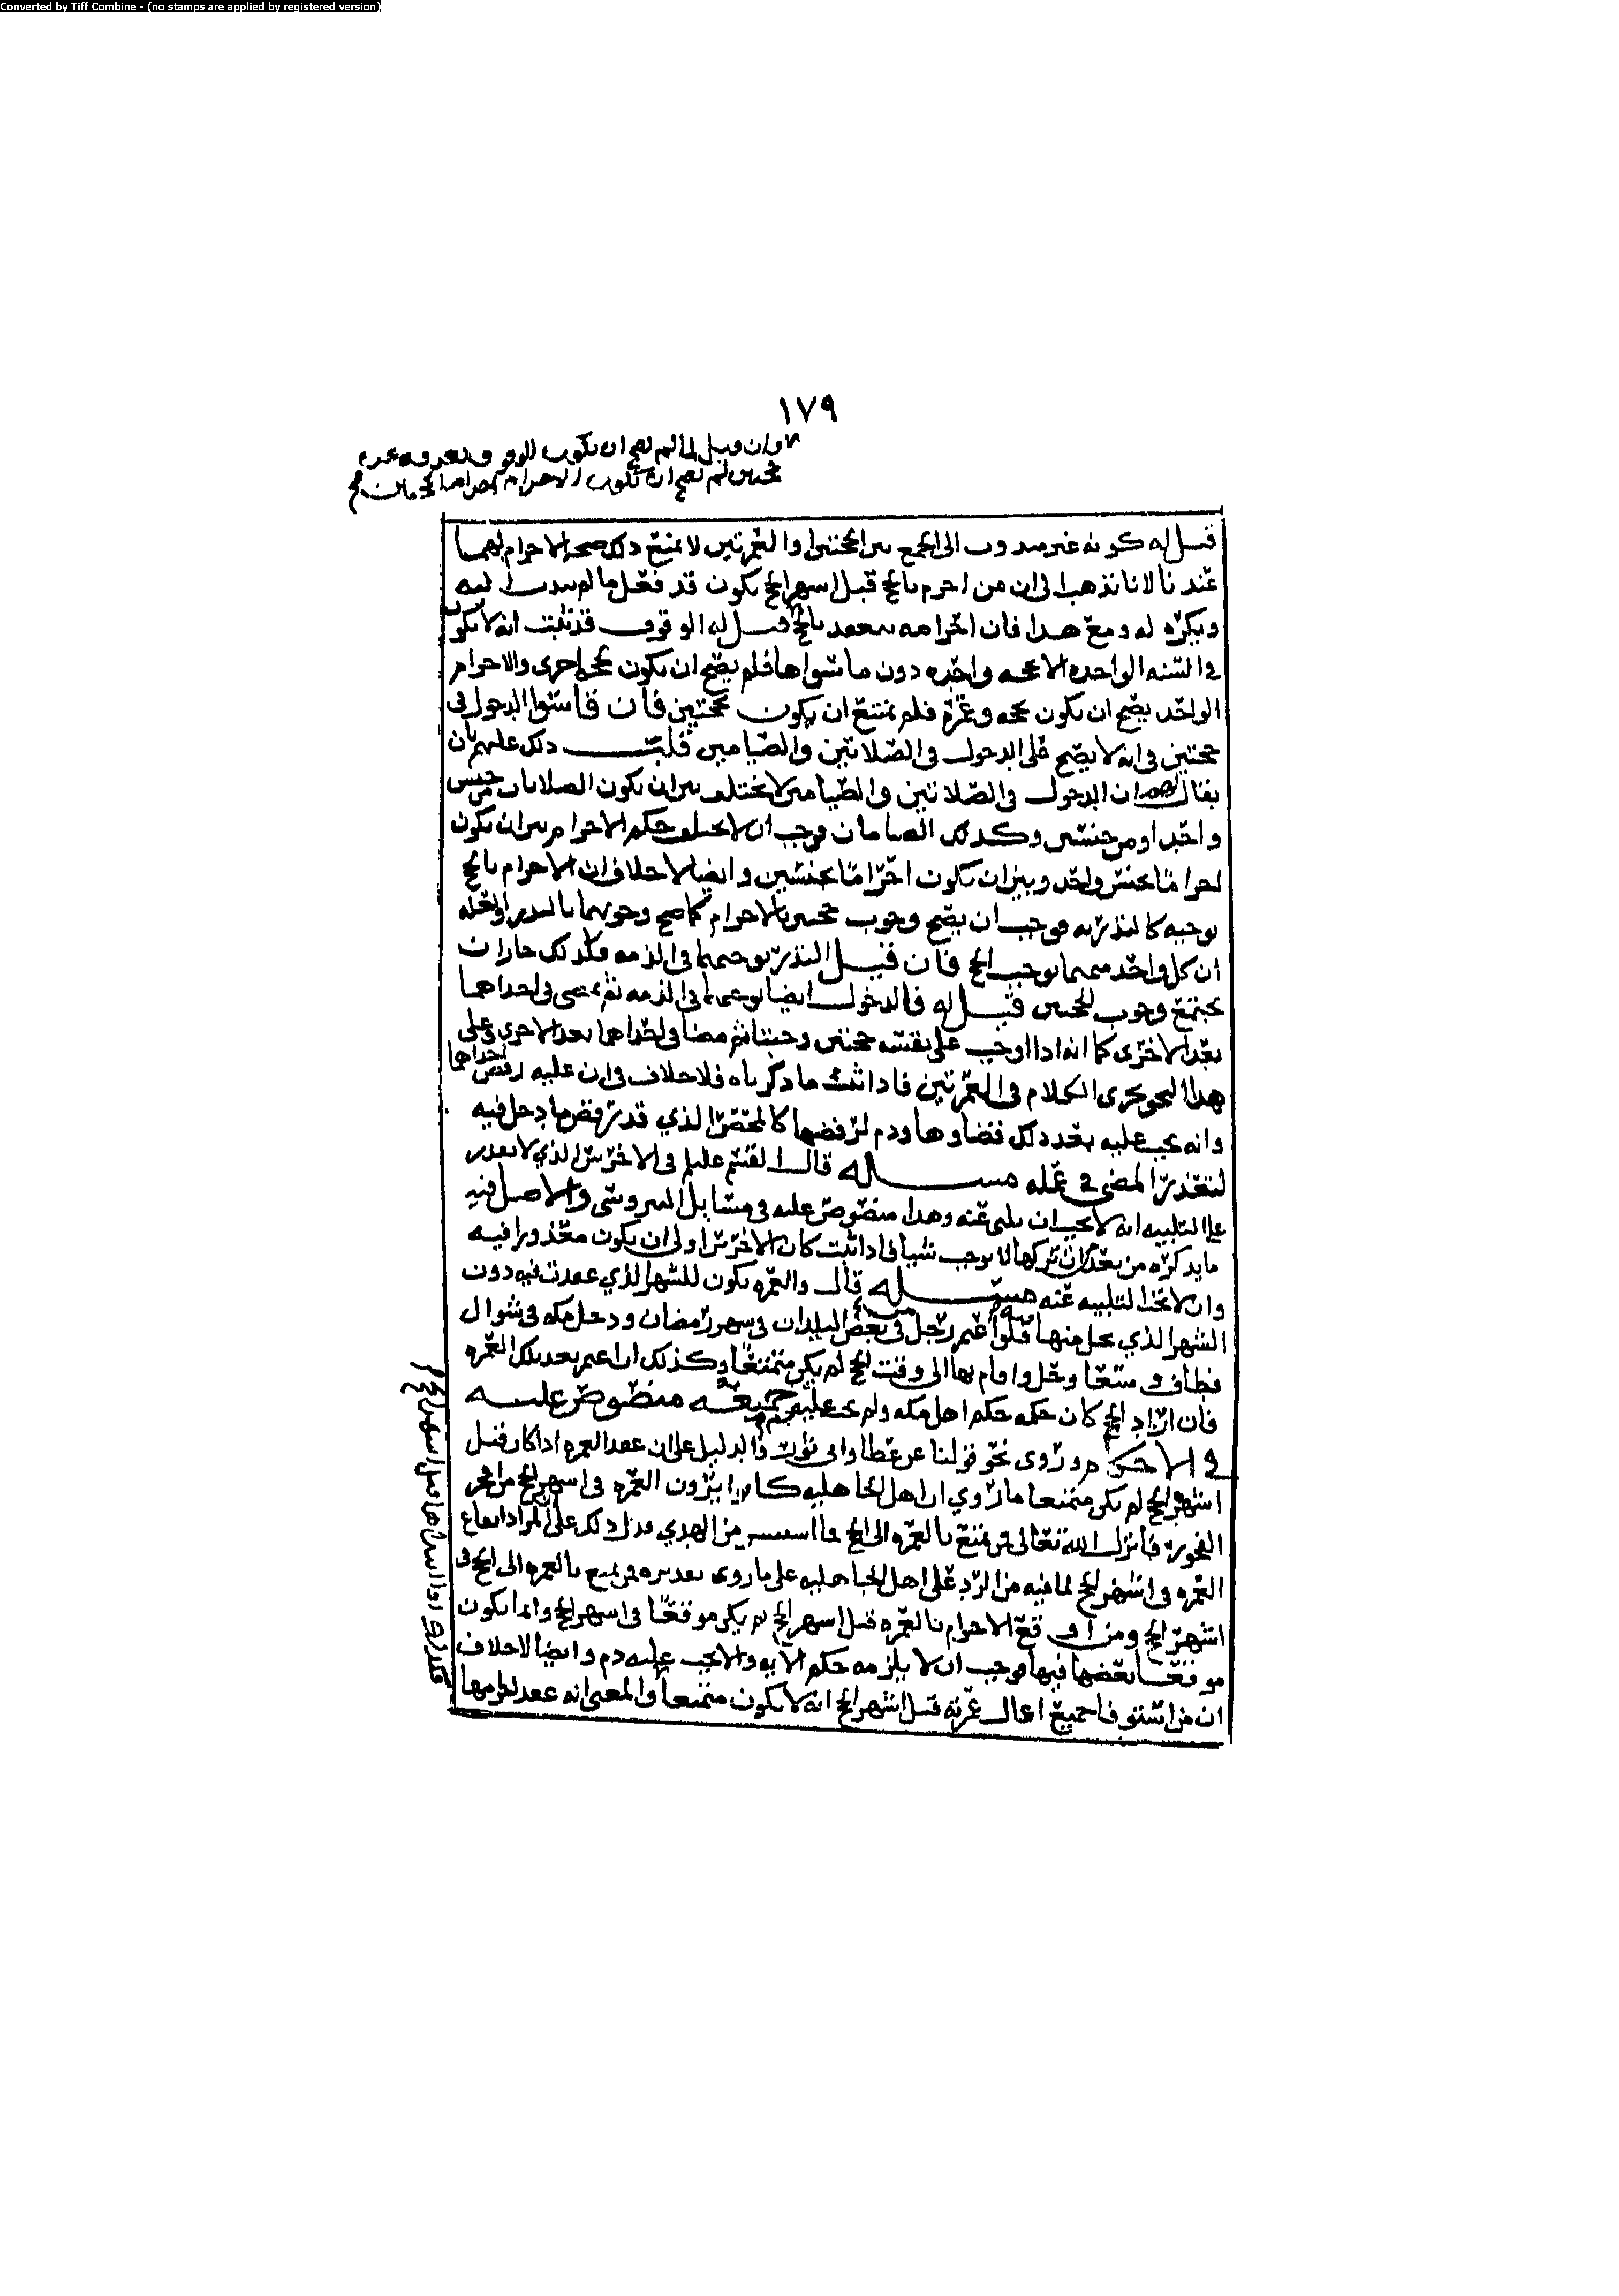 Converted by Tiff Combine - (no stamps are applied by registered version)
١٧٩
وان قيل لما لم يصح ان يكون الوقوف بعرفه عن
حجتين لم يصح ان يكون الاحرام احراما
قيل له كونه غير مندوب الى الجمع بين الحجتين والعمرتين لا يمنع ذلك صحة الاحرام بهما
عندنا لانا نذهب الى ان من احرم بالحج قبل اشهر الحج يكون قد فعل ما لم يندب اليه
ويكره له ومع هذا فان احرامه ينعقد بالحج قيل له الوقوف قد ثبت انه لا يكون
في السنه الواحده الا عن حجه واحده دون ما سواها فلم يصح ان يكون لحجه اخرى والاحرام
الواحد يصح ان يكون بحجه وعمرة فلم يمتنع ان يكون بحجتين فان قاسوا الدخول في
حجتين في انه لا يصح على الدخول في الصلاتين والصيامين قلبت ذلك عليهم بان
يقال لهم ان الدخول في الصلاتين والصيامين لا يختلف بين ان يكون الصلاتان من جنس
واحد او من جنسين وكذلك الصيامان فوجب ان لا يختلف حكم الاحرام بين ان يكون
احراما بجنس واحد وبين ان يكون احراما بجنسين وايضا لا خلاف ان الاحرام بالحج
يوجبه كالنذر به فوجب ان يصح وجوب حجتين بالاحرام كما صح وجوبهما بالنذر والعله
ان كل واحد منهما يوجب الحج فان قيل النذر يوجبهما في الذمه فكذلك جاز ان
يجتمع وجوب الحجتين قيل له فالدخول ايضا يوجبهما في الذمه ثم يمضي في احداهما
بعد الاخرى كما انه اذا اوجب على نفسه حجتين وجبتا ثم مضا في احداهما بعد الاخرى وعلى
هذا النحو يجرى الكلام في العمرتين فاذا ثبت ما ذكرناه فلا خلاف في ان عليه رفض احداهما
وانه يجب عليه بعد ذلك قضاوها ودم لرفضها كالمحصر الذي قد رفض ما دخل فيه
لتعذر المضي في عمله مسـله قال القسم عليلم في الاخرس الذي لا يقدر
على التلبيه انه لا يجب ان يلبى عنه وهذا منصوص عليه في مسايل النيروسي والاصل فيه
ما يذكره من بعد ان تركها لا يوجب شيا فاذا ثبت كان الاخرس اولى ان يكون معذورا فيه
وان لا تجزا التلبيه عنه مسـله قال والعمره يكون للشهر الذي عقدت فيه دون
الشهر الذي يحل منها فلو اعتمر رجل في بعض البلدان في شهر رمضان ودخل مكه في شوال
فطاف وسعا وحل واقام بها الى وقت الحج لم يكن متمتعا وكذلك ان اعتمر بعد تلك العمره
فان اراد الحج كان حكمه حكم اهل مكه ولم يجب عليه دم جميعه منصوص عليه
في الاحكام وروى نحو قولنا عن عطا وابي ثور والدليل على ان عقد العمره اذا كان قبل
اشهر الحج لم يكن متمتعا ما روي ان اهل الجاهليه كانوا يرون العمره في اشهر الحج من افجر
الفجور فانزل الله تعالى فمن تمتع بالعمره الى الحج فما استيسر من الهدي فدل ذلك على ان المراد ايقاع
العمره في اشهر الحج لما فيه من الرد على اهل الجاهليه على ما روى تقديره فمن تمتع بالعمره الى الحج في
اشهر الحج ومن اوقع الاحرام بالعمره قبل اشهر الحج لم يكن موقعا في اشهر الحج وانما يكون
موقعا بعضها فيها فوجب ان لا يلزمه حكم الايه ولا يجب عليه دم وايضا لا خلاف
ان من استوفا جميع اعمال عمرته قبل اشهر الحج انه لا يكون متمتعا والمعنى انه عقد احرامها
فكذلك اذا